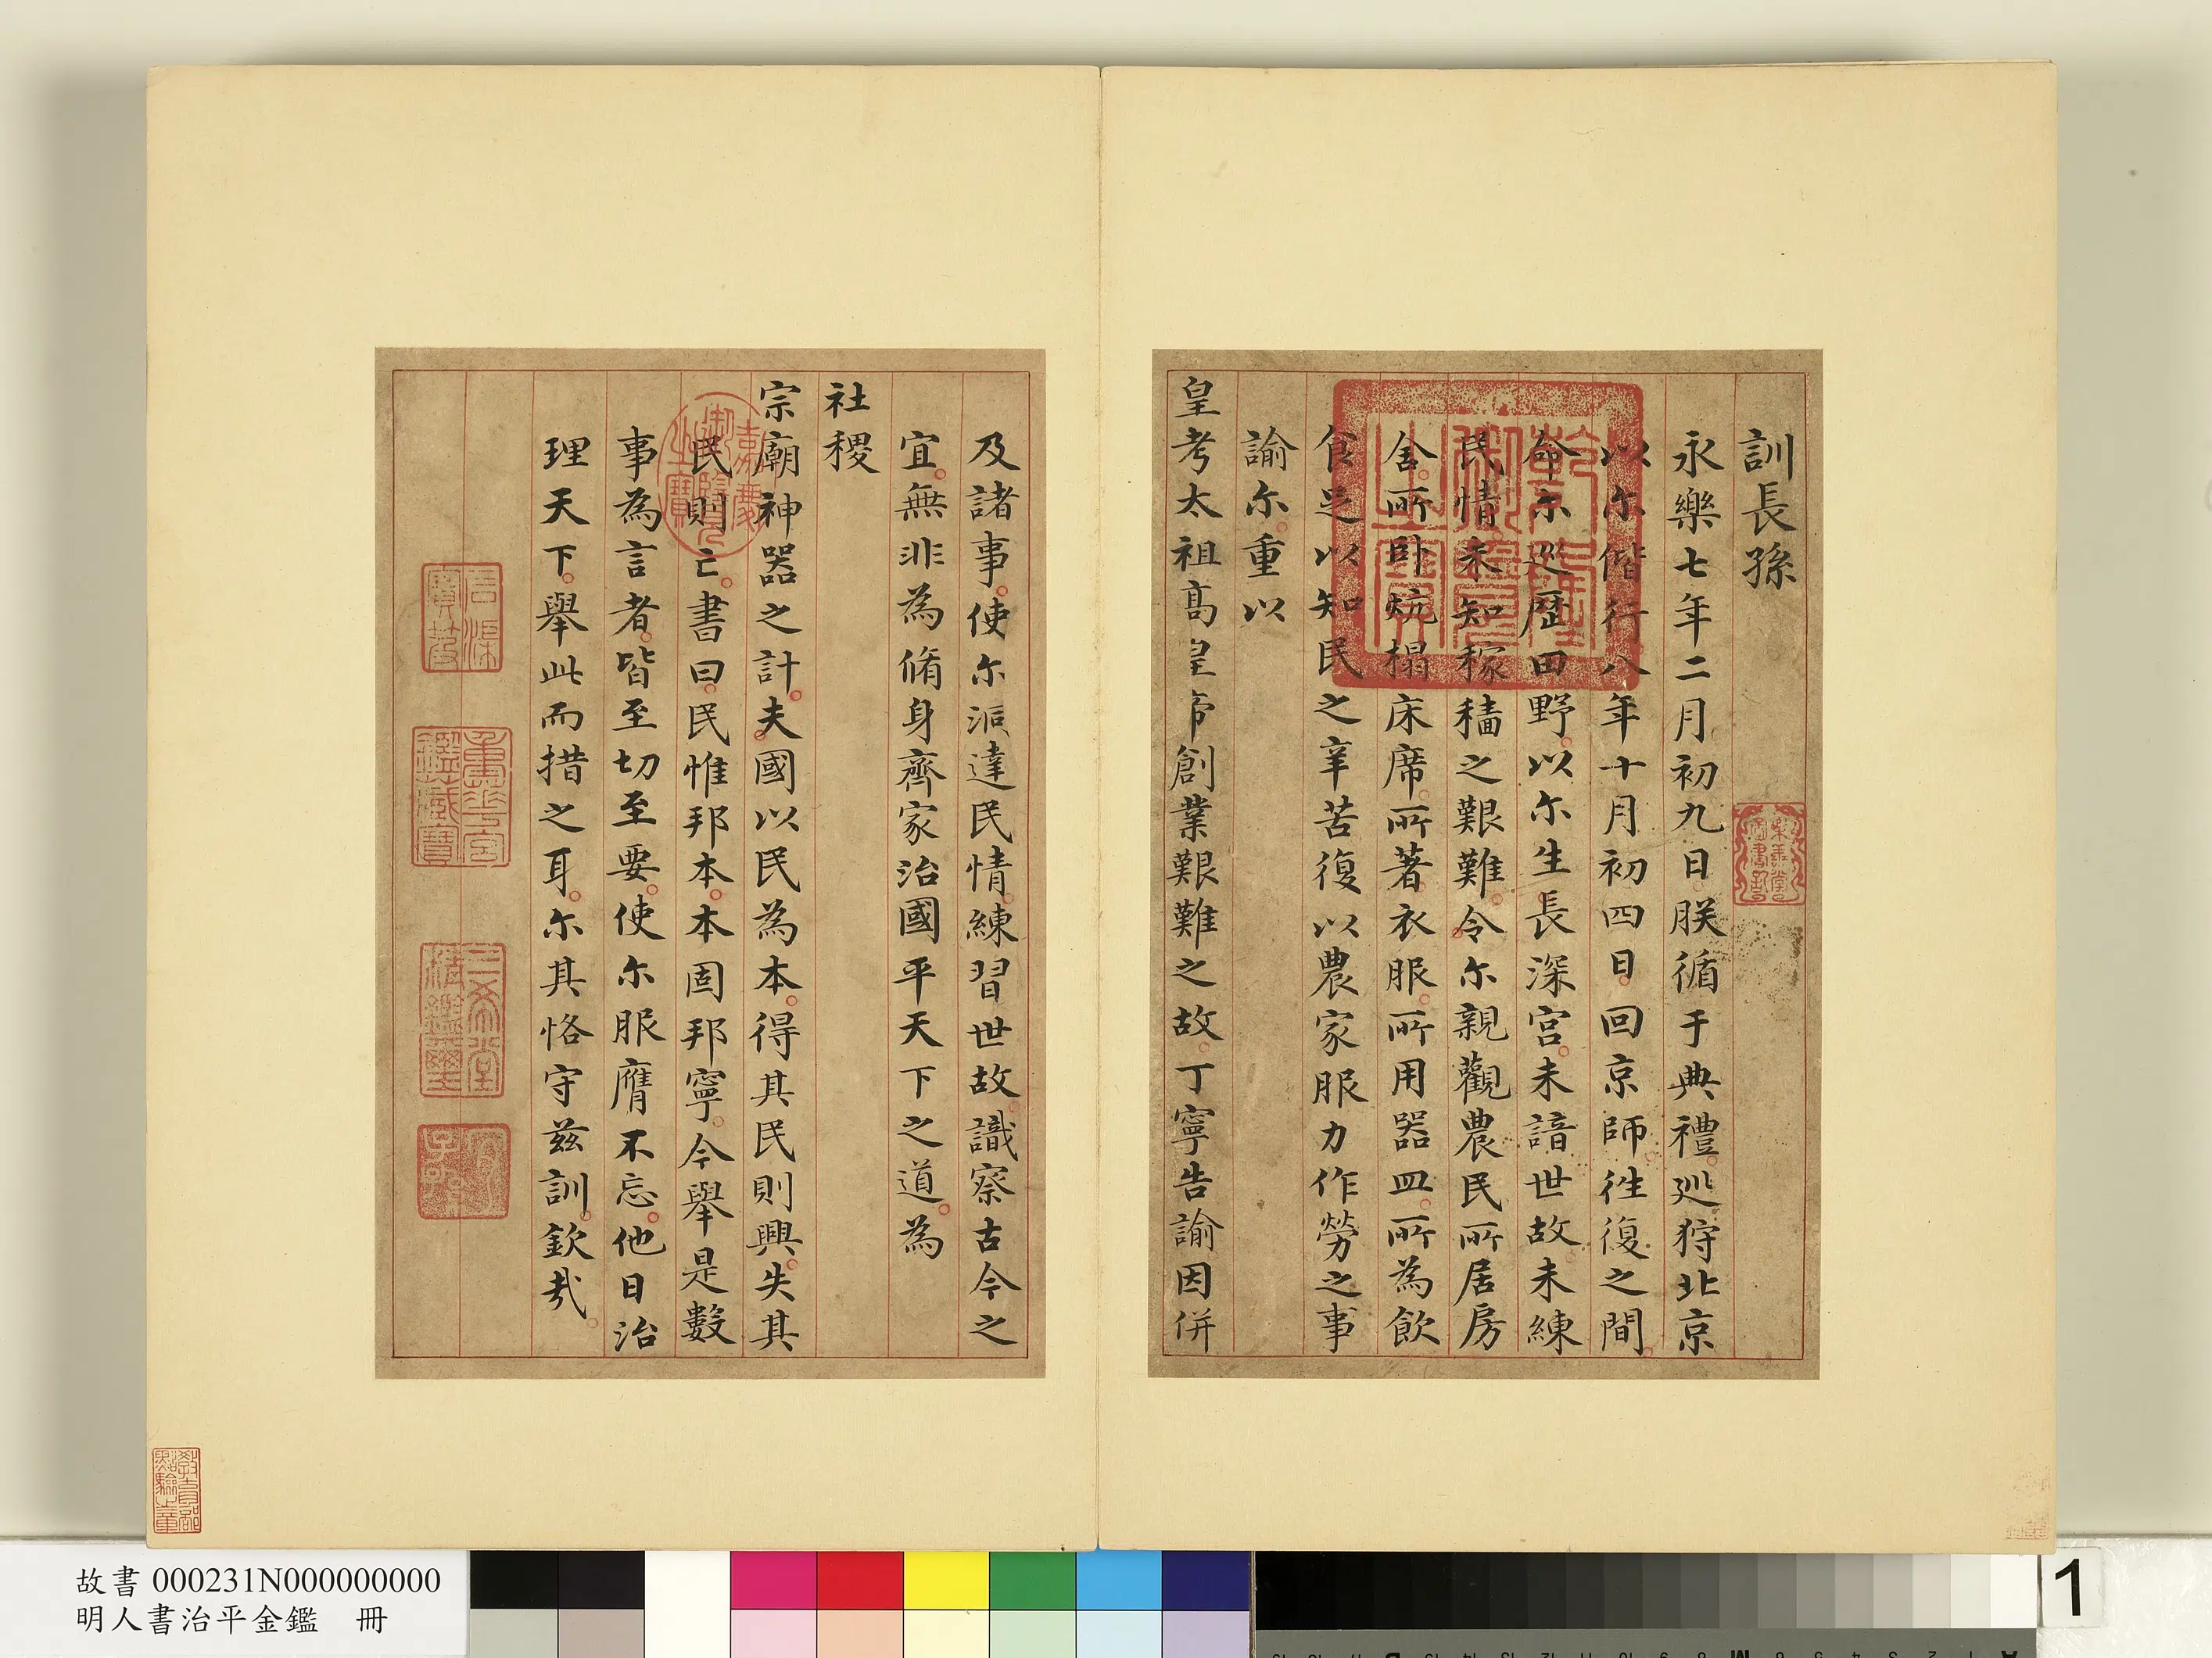 訓長孫
永樂七年二月初九日朕循于典禮巡狩北京
以尔偕行八年十月初四日回京師徃復之間
命尔巡歷田野以尔生長深宮未諳世故未練
民情未知稼穡之艱難令尔親觀農民所居房
舍所卧炕榻床席所著衣服所用器皿所為飲
食足以知民之辛苦復以農家服力作勞之事
諭尔重以
皇考太祖髙皇帝創業艱難之故丁寧告諭因併
及諸事使尔洞達民情練習世故識察古今之
宜無非為脩身齊家治國平天下之道為
社稷
宗廟神器之計夫國以民為本得其民則興失其
民則亡書曰民惟邦本本固邦寧今舉是數
事為言者皆至切至要使尔服膺不忘他日治
理天下舉此而措之耳尔其恪守兹訓欽哉
乾隆御覽之寶
嘉慶御覽之寶
石渠寶笈
重華宮鑑藏寶
三希堂精鑑璽
宜子孫
樂善堂圖書記
教育部點驗之章
故書 000231N000000000
明人書治平金鑑 冊
1